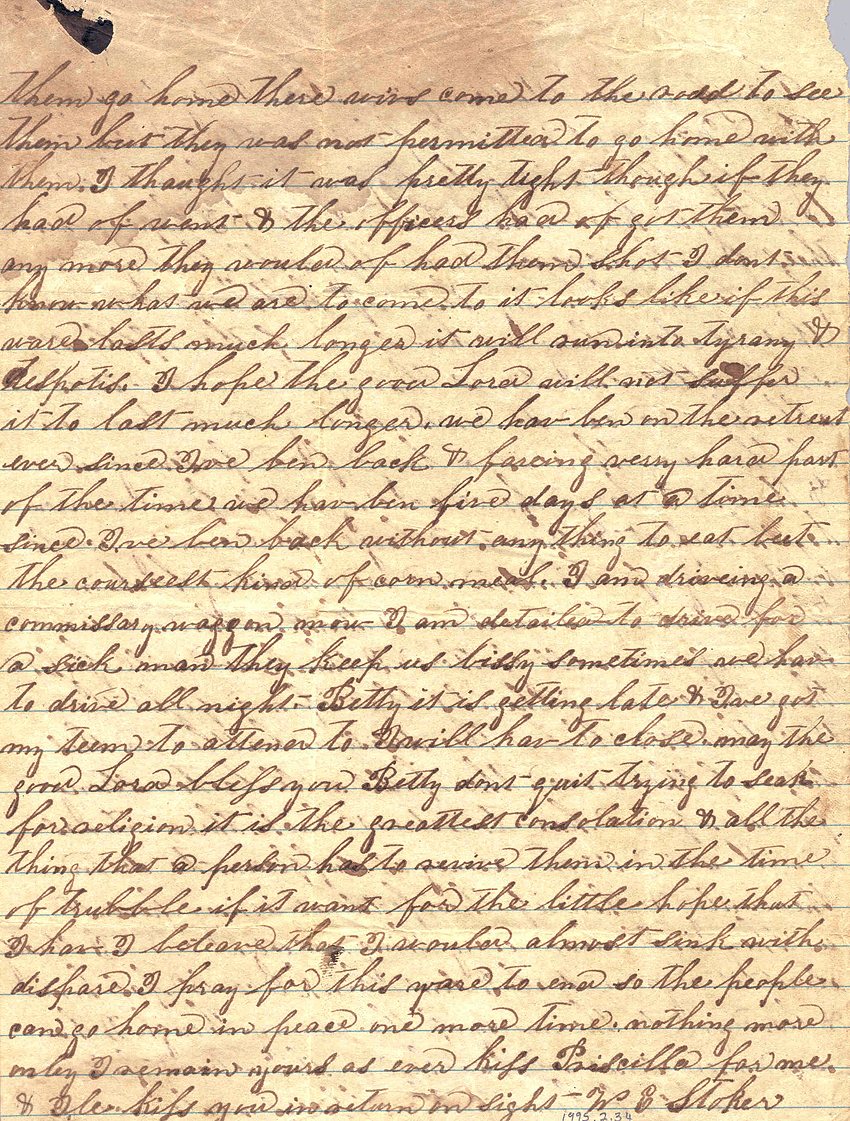 them go home there wivs come to the road to see
them but they was not permitted to go home with
them. I thaught it was pretty tight though if they
had of went & the officers had of got them
any more they would of had them shot I dont
know what we are to come to it looks like if this
ware lasts much longer it will run into tyrany &
despotis. I hope the good Lord will not suffer
it to last much longer. we hav ben on the retreat
ever since I've ben back & farcing verry hard part
of the time we hav ben five days at a time
since I've ben back without any thing to eat but
the courseest kind of corn meal. I am driveing a
commissary waggon now I am detailed to drive for
a sick man they keep us bissy sometimes we hav
to drive all night. Betty it is getting late & I've got
my teem to attend to I will hav to close. may the
good Lord bless you Betty dont quit trying to seak
for religion it is the greattest consolation & all the
thing that a person has to revive them in the time
of trubble if it want for the little hope that
I hav I beleave that I would almost sink with
dispare. I pray for this ware to end so the people
can go home in peace one more time. nothing more
only I remain yours as ever kiss Priscilla for me.
& Ile kiss you in return on sight W E Stoker
1995.2.34